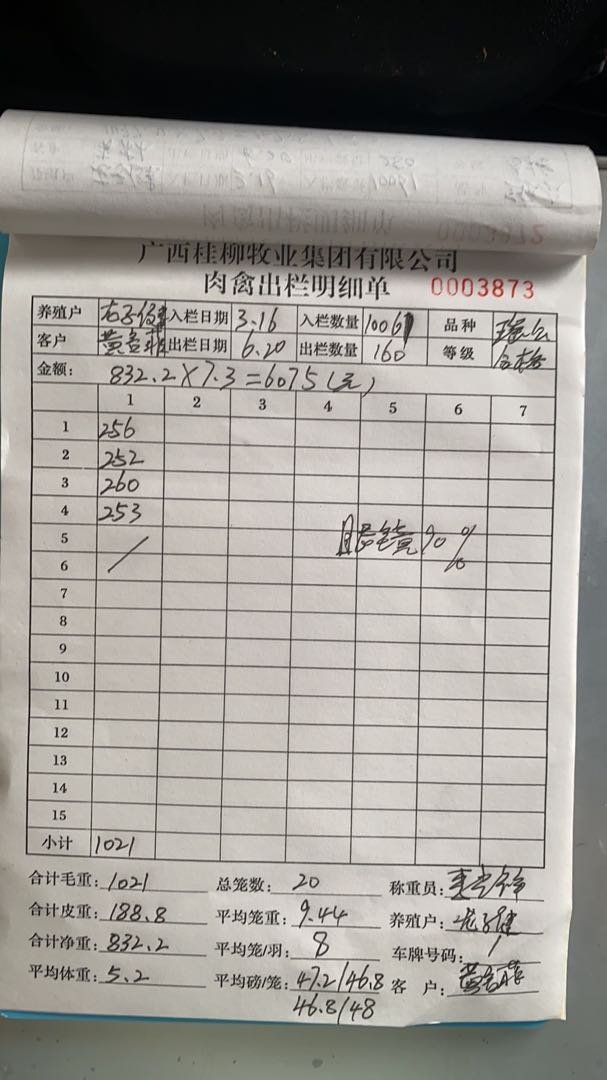 广西桂柳牧业集团有限公司
肉禽出栏明细单 0003873
养殖户 入栏日期 3.16 入栏数量 品种 瑶公
客户 出栏日期 6.20 出栏数量 160 等级 合格
金额: 832.2×7.3=6075(元)
1 2 3 4 5 6 7
1 256
2 252
3 260
4 253
5 90%
6
7
8
9
10
11
12
13
14
15
小计 1021
合计毛重: 1021 总笼数: 20 称重员:
合计皮重: 188.8 平均笼重: 9.44 养殖户:
合计净重: 832.2 平均笼/羽: 8 车牌号码: /
平均体重: 5.2 平均磅/笼: 47.2/46.8 客 户:
46.8/48